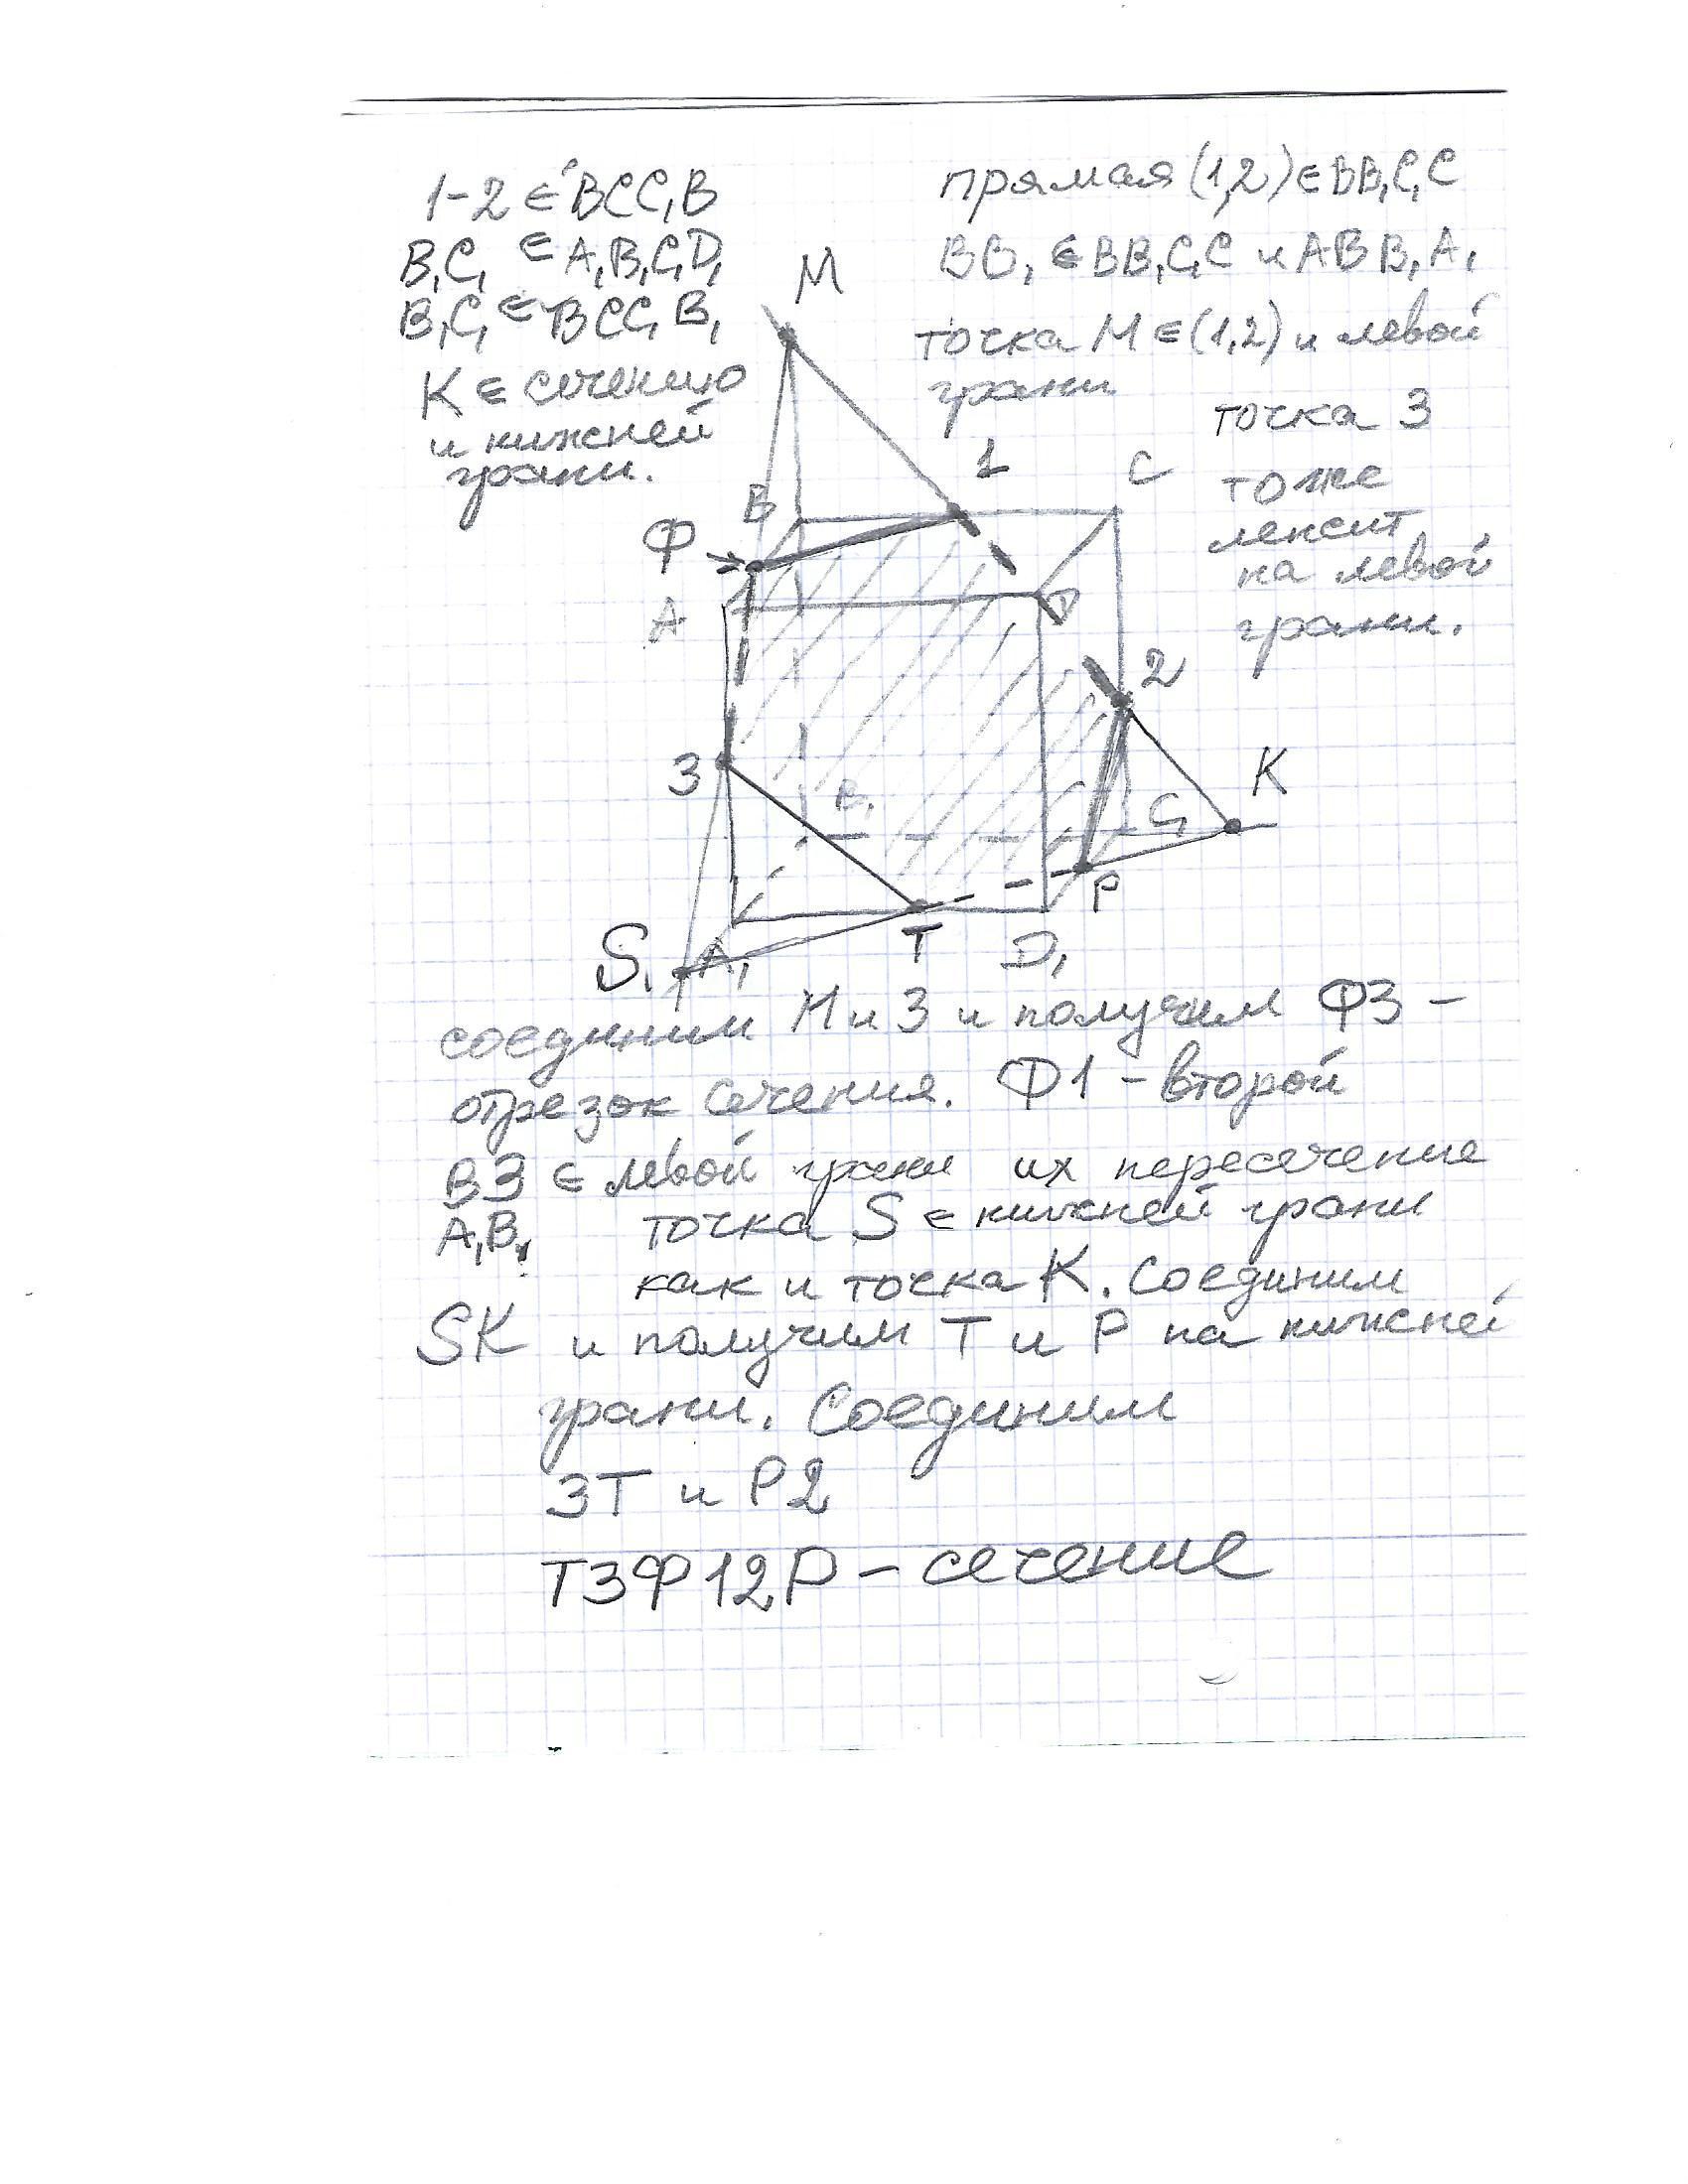 1-2 ∈ BCC₁B
B₁C₁ ∈ A₁B₁C₁D₁
B₁C₁ ∈ BCC₁B₁
K ∈ сечению
и нижней
грани.
прямая (1,2) ∈ BB₁C₁C
BB₁ ∈ BB₁C₁C и ABB₁A₁
точка M ∈ (1,2) и левой
грани
точка 3
тоже
лежит
на левой
грани.
M
1
C
B
Ф
A
D
2
3
K
B₁
C₁
P
T
D₁
S
A₁
соединим М и 3 и получим Ф3 -
отрезок сечения. Ф1 - второй
В3 ∈ левой грани их пересечение
A₁B₁, точка S ∈ нижней грани
как и точка K. Соединим
SK и получим T и P на нижней
грани. Соединим
3T и P2
T3Ф12P - сечение